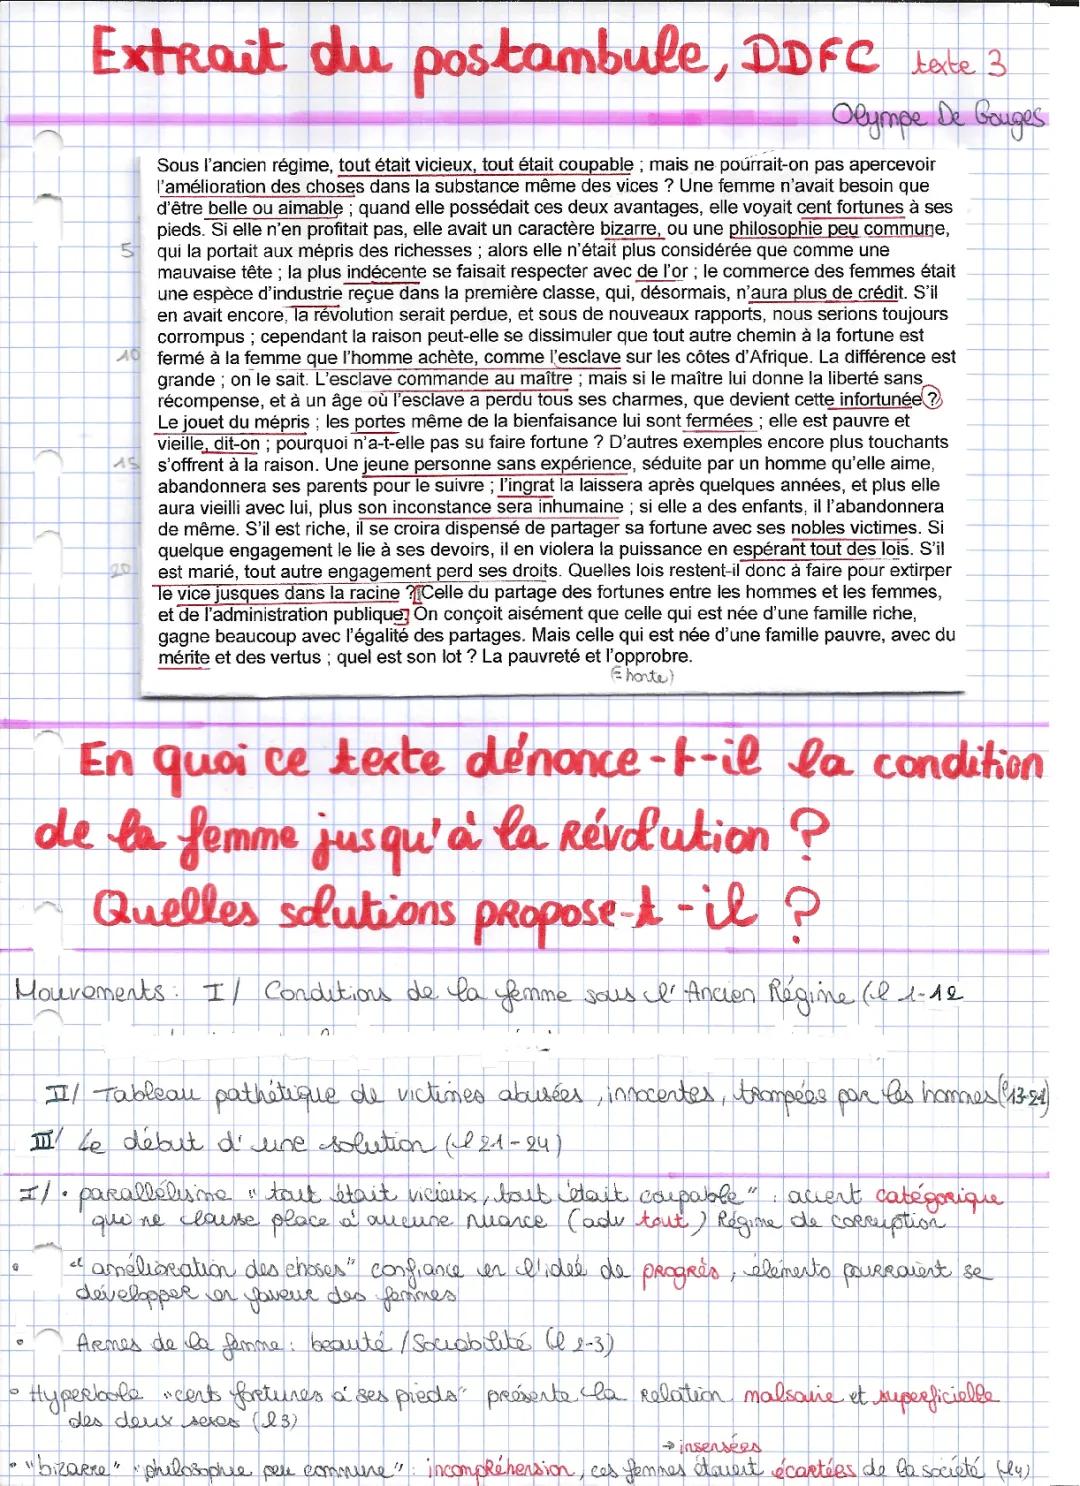 Extrait du postambule, DDFC texte 3
Olympe De Gouges
Sous l'ancien régime, tout était vicieux, tout était coupable ; mais ne pourrait-on pas apercevoir
l'amélioration des choses dans la substance même des vices ? Une femme n'avait besoin que
d'être belle ou aimable ; quand elle possédait ces deux avantages, elle voyait cent fortunes à ses
pieds. Si elle n'en profitait pas, elle avait un caractère bizarre, ou une philosophie peu commune,
5 qui la portait aux mépris des richesses ; alors elle n'était plus considérée que comme une
mauvaise tête ; la plus indécente se faisait respecter avec de l'or ; le commerce des femmes était
une espèce d'industrie reçue dans la première classe, qui, désormais, n'aura plus de crédit. S'il
en avait encore, la révolution serait perdue, et sous de nouveaux rapports, nous serions toujours
corrompus ; cependant la raison peut-elle se dissimuler que tout autre chemin à la fortune est
10 fermé à la femme que l'homme achète, comme l'esclave sur les côtes d'Afrique. La différence est
grande ; on le sait. L'esclave commande au maître ; mais si le maître lui donne la liberté sans
récompense, et à un âge où l'esclave a perdu tous ses charmes, que devient cette infortunée ?
Le jouet du mépris ; les portes même de la bienfaisance lui sont fermées ; elle est pauvre et
vieille, dit-on ; pourquoi n'a-t-elle pas su faire fortune ? D'autres exemples encore plus touchants
15 s'offrent à la raison. Une jeune personne sans expérience, séduite par un homme qu'elle aime,
abandonnera ses parents pour le suivre ; l'ingrat la laissera après quelques années, et plus elle
aura vieilli avec lui, plus son inconstance sera inhumaine ; si elle a des enfants, il l'abandonnera
de même. S'il est riche, il se croira dispensé de partager sa fortune avec ses nobles victimes. Si
quelque engagement le lie à ses devoirs, il en violera la puissance en espérant tout des lois. S'il
20 est marié, tout autre engagement perd ses droits. Quelles lois restent-il donc à faire pour extirper
le vice jusques dans la racine ? [Celle du partage des fortunes entre les hommes et les femmes,
et de l'administration publique.] On conçoit aisément que celle qui est née d'une famille riche,
gagne beaucoup avec l'égalité des partages. Mais celle qui est née d'une famille pauvre, avec du
mérite et des vertus ; quel est son lot ? La pauvreté et l'opprobre.
(= honte)
En quoi ce texte dénonce-t-il la condition
de la femme jusqu'à la Révolution ?
Quelles solutions propose-t-il ?
Mouvements : I/ Conditions de la femme sous l'Ancien Régime (l 1-12
II/ Tableau pathétique de victimes abusées, innocentes, trompées par les hommes (l 13-21)
III/ Le début d'une solution (l 21-24)
I/ • parallélisme "tout était vicieux, tout était coupable" : accent catégorique
qui ne laisse place à aucune nuance (adv tout) Régime de corruption
• "amélioration des choses" confiance en l'idée de progrès, éléments pourraient se
développer en faveur des femmes
• Armes de la femme : beauté / Sociabilité (l 2-3)
• Hyperbole "cent fortunes à ses pieds" présente la relation malsaine et superficielle
des deux sexes (l3)
→ insensées
• "bizarre" "philosophie peu commune" : incompréhension, ces femmes étaient écartées de la société (l4)